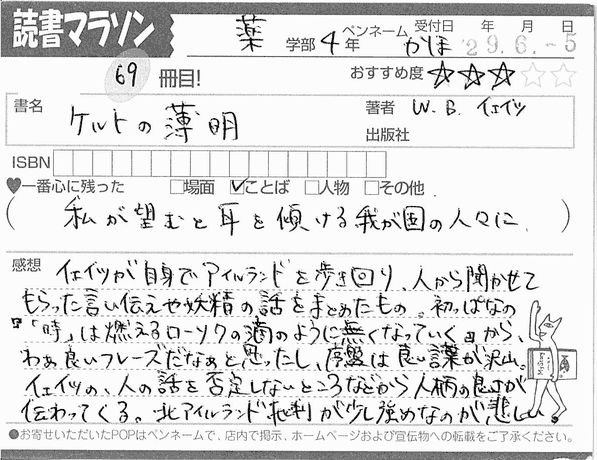 読書マラソン
薬 学部 4年 ペンネーム かほ 受付日 年 月 日 '29.6.-5
69 冊目! おすすめ度 ★★★☆☆
書名 ケルトの薄明 著者 W.B.イェイツ
出版社
ISBN
♥一番心に残った □場面 ☑ことば □人物 □その他
(私が望むと耳を傾ける我が国の人々に)
感想 イェイツが自身でアイルランドを歩き回り、人から聞かせて
もらった言い伝えや妖精の話をまとめたもの。初っぱなの
『「時」は燃えるローソクの滴のように無くなっていく』から、
わぁ良いフレーズだなぁと思ったし、序盤は良い言葉が沢山。
イェイツの、人の話を否定しないところなどから人柄の良さが
伝わってくる。北アイルランド批判が少し強めなのが悲しい
●お寄せいただいたPOPはペンネームで、店内で掲示、ホームページおよび宣伝物への転載をご了承ください。